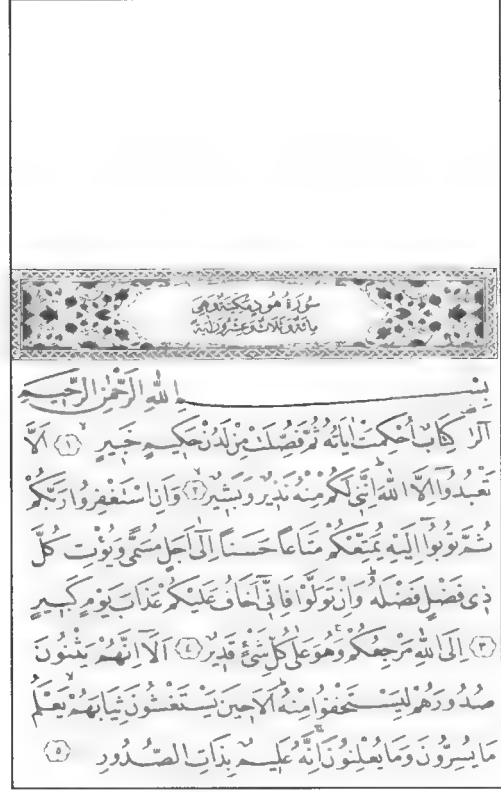 سُورَةُ هُودٍ مَكِّيَّةٌ وَهِيَ
مِائَةٌ وَثَلَاثٌ وَعِشْرُونَ اٰيَةً
بِسْمِ اللّٰهِ الرَّحْمٰنِ الرَّحِيمِ
الٓرٰ كِتَابٌ اُحْكِمَتْ اٰيَاتُهُ ثُمَّ فُصِّلَتْ مِنْ لَدُنْ حَكِيمٍ خَبِيرٍۙ ﴿١﴾ اَلَّا
تَعْبُدُٓوا اِلَّا اللّٰهَۜ اِنَّنِي لَكُمْ مِنْهُ نَذِيرٌ وَبَشِيرٌۙ ﴿٢﴾ وَاَنِ اسْتَغْفِرُوا رَبَّكُمْ
ثُمَّ تُوبُٓوا اِلَيْهِ يُمَتِّعْكُمْ مَتَاعًا حَسَنًا اِلٰٓى اَجَلٍ مُسَمًّى وَيُؤْتِ كُلَّ
ذِي فَضْلٍ فَضْلَهُۜ وَاِنْ تَوَلَّوْا فَاِنِّٓي اَخَافُ عَلَيْكُمْ عَذَابَ يَوْمٍ كَبِيرٍ
﴿٣﴾ اِلَى اللّٰهِ مَرْجِعُكُمْۚ وَهُوَ عَلٰى كُلِّ شَيْءٍ قَدِيرٌ ﴿٤﴾ اَلَٓا اِنَّهُمْ يَثْنُونَ
صُدُورَهُمْ لِيَسْتَخْفُوا مِنْهُۜ اَلَا حِينَ يَسْتَغْشُونَ ثِيَابَهُمْۙ يَعْلَمُ
مَا يُسِرُّونَ وَمَا يُعْلِنُونَۚ اِنَّهُ عَلِيمٌ بِذَاتِ الصُّدُورِ ﴿٥﴾